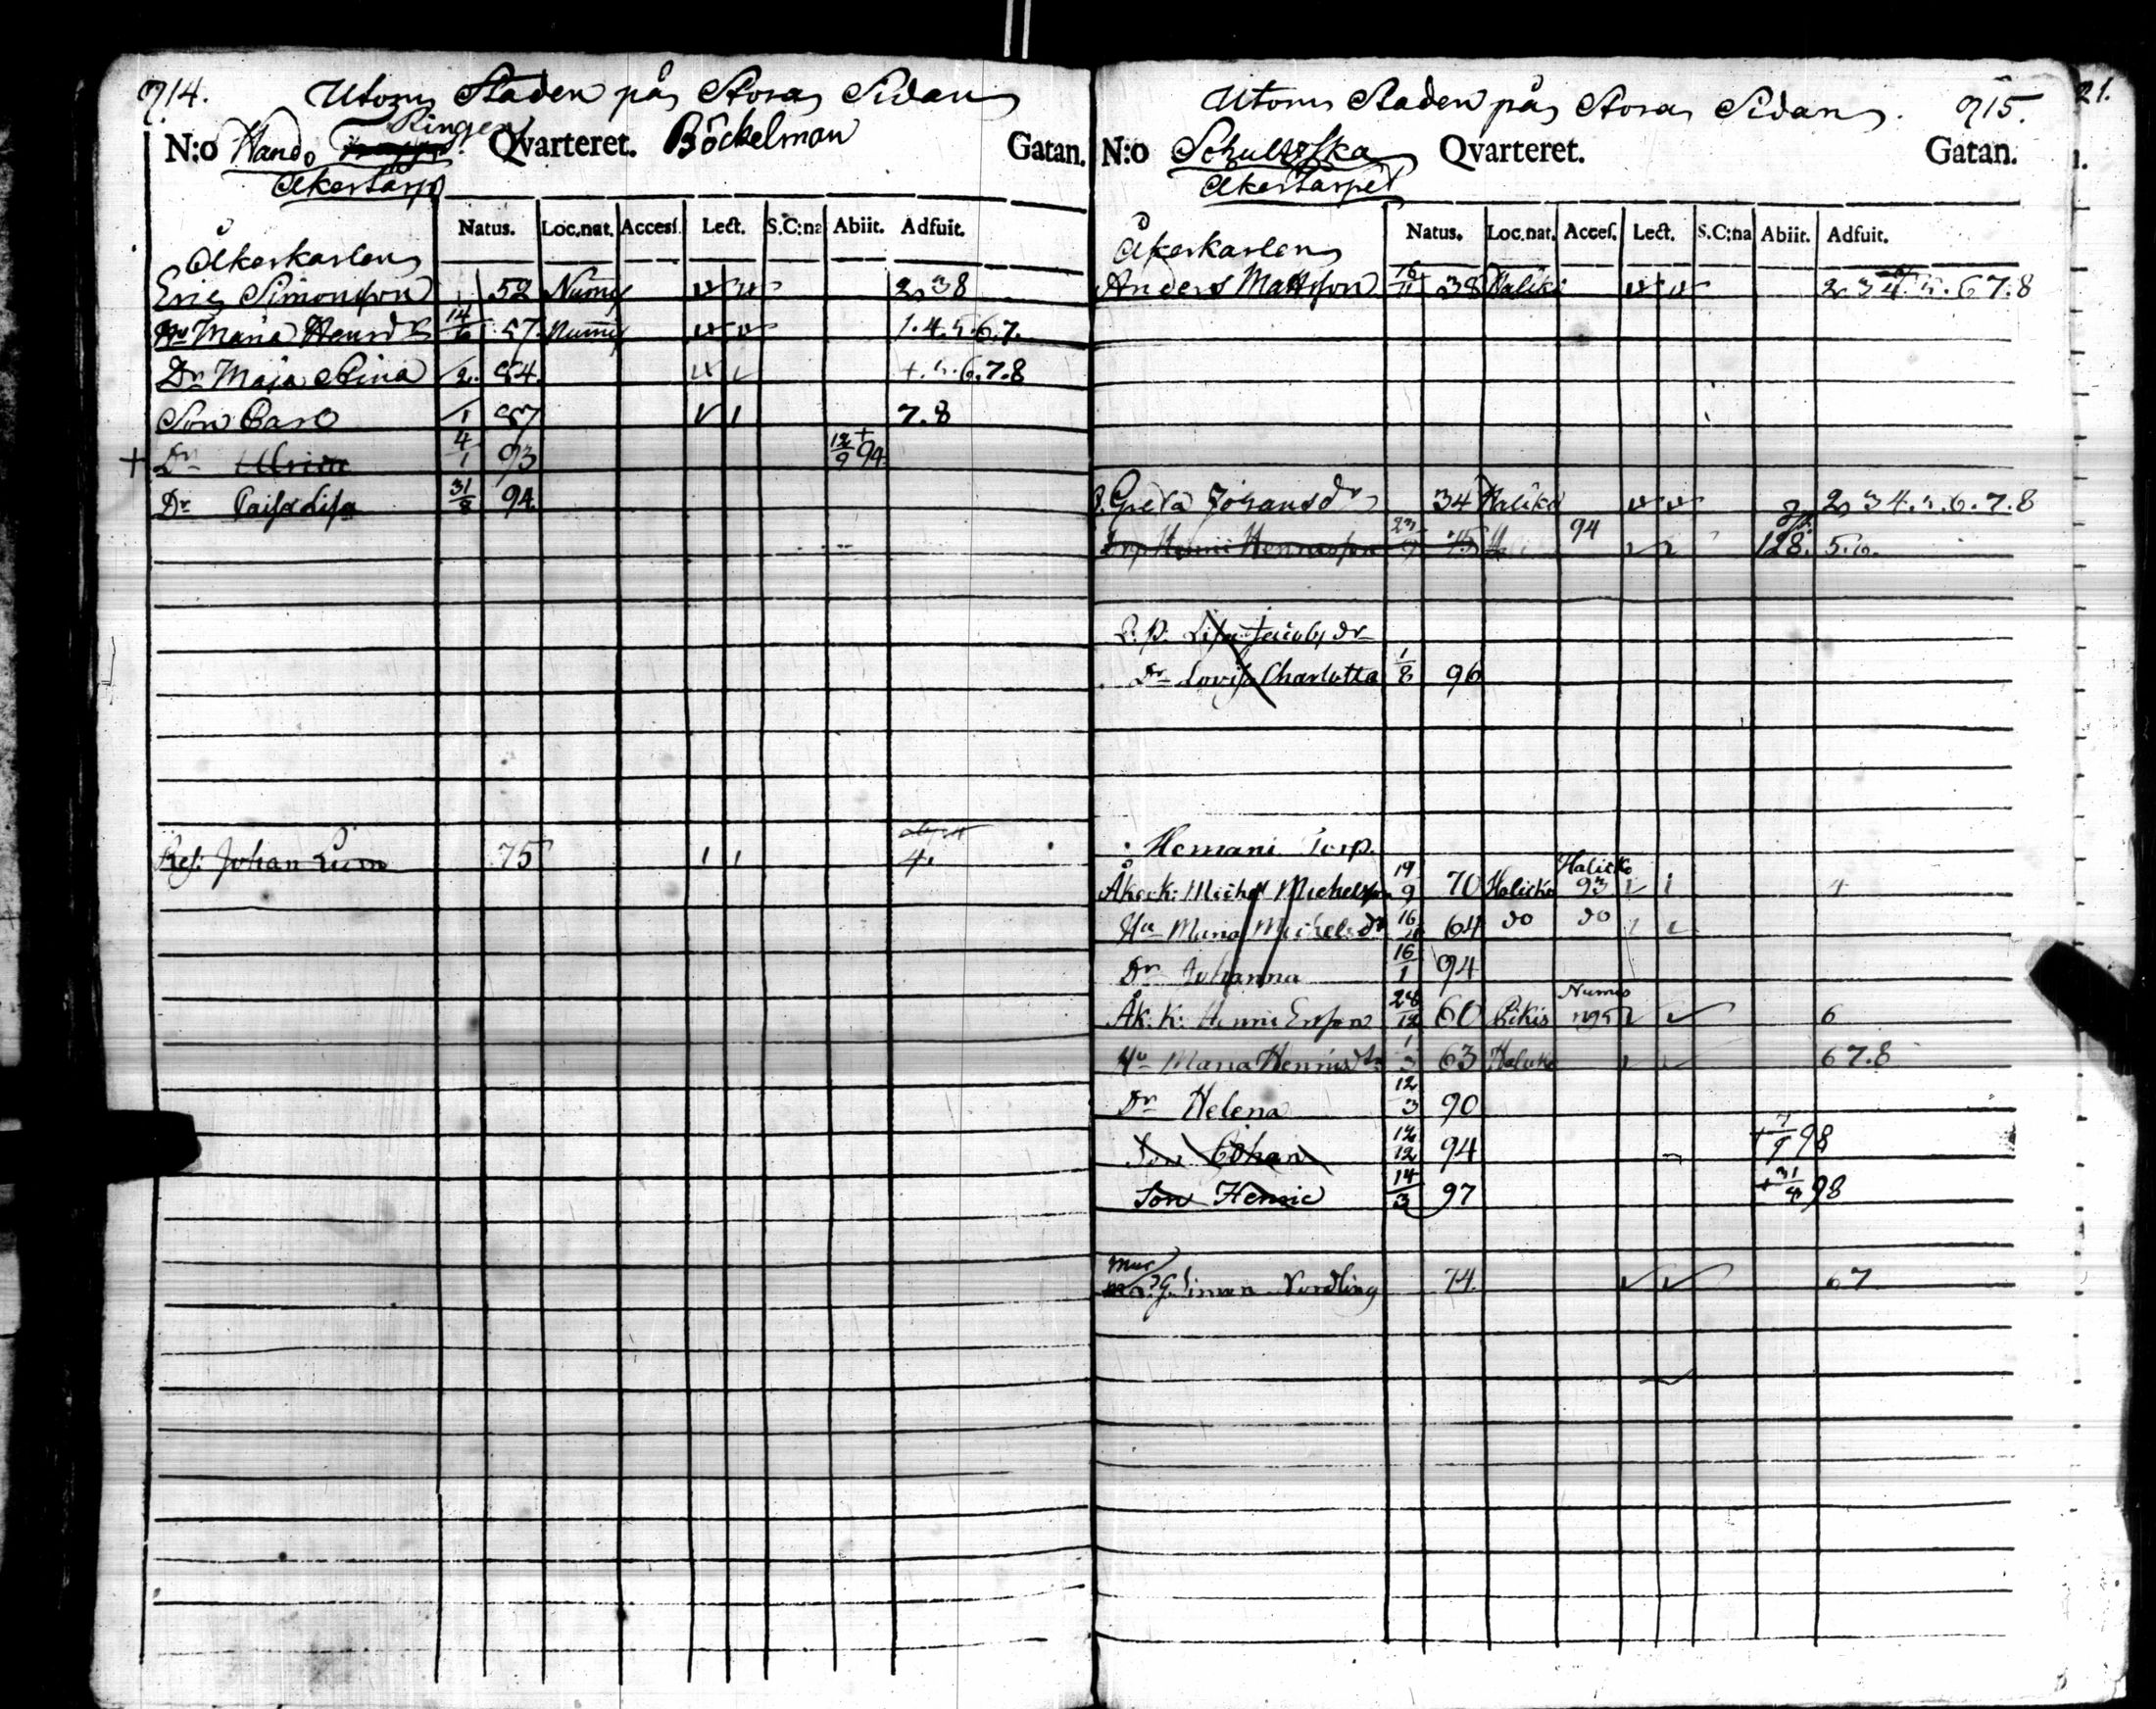 914. Utom Staden på Stora Sidan
Ringen
N:o Hand. Qvarteret. Böckelman Gatan.
Åkertorp
Natus. Loc.nat. Access. Lect. S.C:na Abiit. Adfuit.
Åkerkarlen
Eric Simonsson 52 Numis 2 3 8
Hu Maria Hensdr 14/6 57. Numis 1.4.5.6.7.
Dr Maja Stina /2. 84. 4.5.6.7.8
Son Carl /1 87 7.8
+ Dr Ulrica 4/1 93 12/9 + 94
Dr Caisa Lisa 31/8 94.
Ref. Johan 75 4.
Utom Staden på Stora Sidan. 915.
N:o Schultzska Qvarteret. Gatan.
Åkertorpet
Natus. Loc.nat. Acces. Lect. S.C:na Abiit. Adfuit.
Åkerkarlen
Anders Mattsson 16/11 38 Haliko 2 3 4.5.6 7.8
Greta Johansdr 34 Haliko 2 3 4.5.6.7.8
Henric Henricsson 23/9 75 94 128. 5.6.
Q.p. Lisa Jacobsdr
Dr Lovisa Charlotta 1/8 96
Hemani Torp.
Halicko
Åkerk: Michel Michelsson 19/9 70 Halicko 93 4
Hu Maria Michelsdr 16 64 do do
Dr Johanna 16/1 94
Numis
Åk. K: Henric Ersson 28/12 60 Pikis 1795 6
Hu Maria Hennisdr 1/3 63 Haliko 6 7.8
Dr Helena 12/3 90
Son Johan 12/12 94 + 7/9 98
Son Henric 14/3 97 + 31/4 98
Mur
G. Simon Nordling 74. 6 7
21.
1.